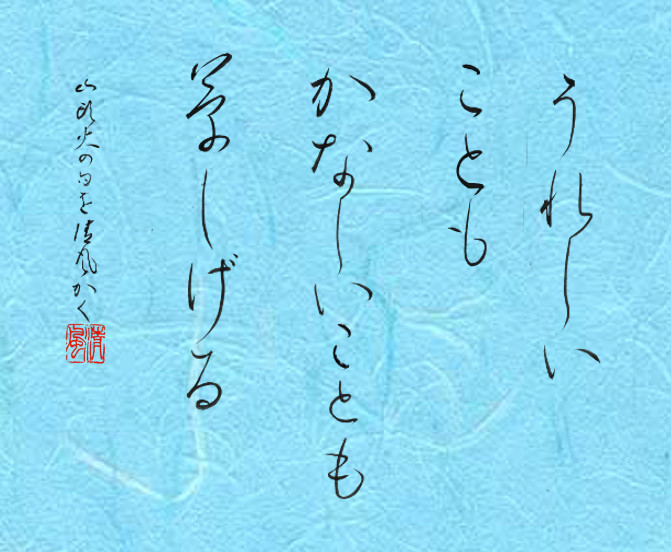 うれしい
ことも
かなしいことも
草しげる
山頭火の句を清風かく
清風